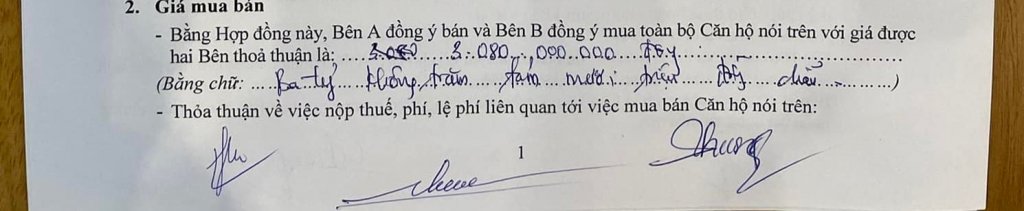 2. Giá mua bán
- Bằng Hợp đồng này, Bên A đồng ý bán và Bên B đồng ý mua toàn bộ Căn hộ nói trên với giá được
hai Bên thoả thuận là: ....3.080 3.080.000.000....đồng.....................
(Bằng chữ: ....Ba tỷ....không trăm....tám....mươi....triệu....đồng....chẵn.............)
- Thỏa thuận về việc nộp thuế, phí, lệ phí liên quan tới việc mua bán Căn hộ nói trên:
1